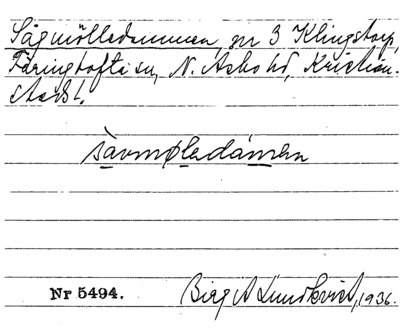 Sågmölledammen, nr 3 Klingstorp,
Färingtofta sn, N. Åsbo hd, Kristian-
stads l.
såvmøledámen
Nr 5494.
Birgit Lundkvist, 1936.